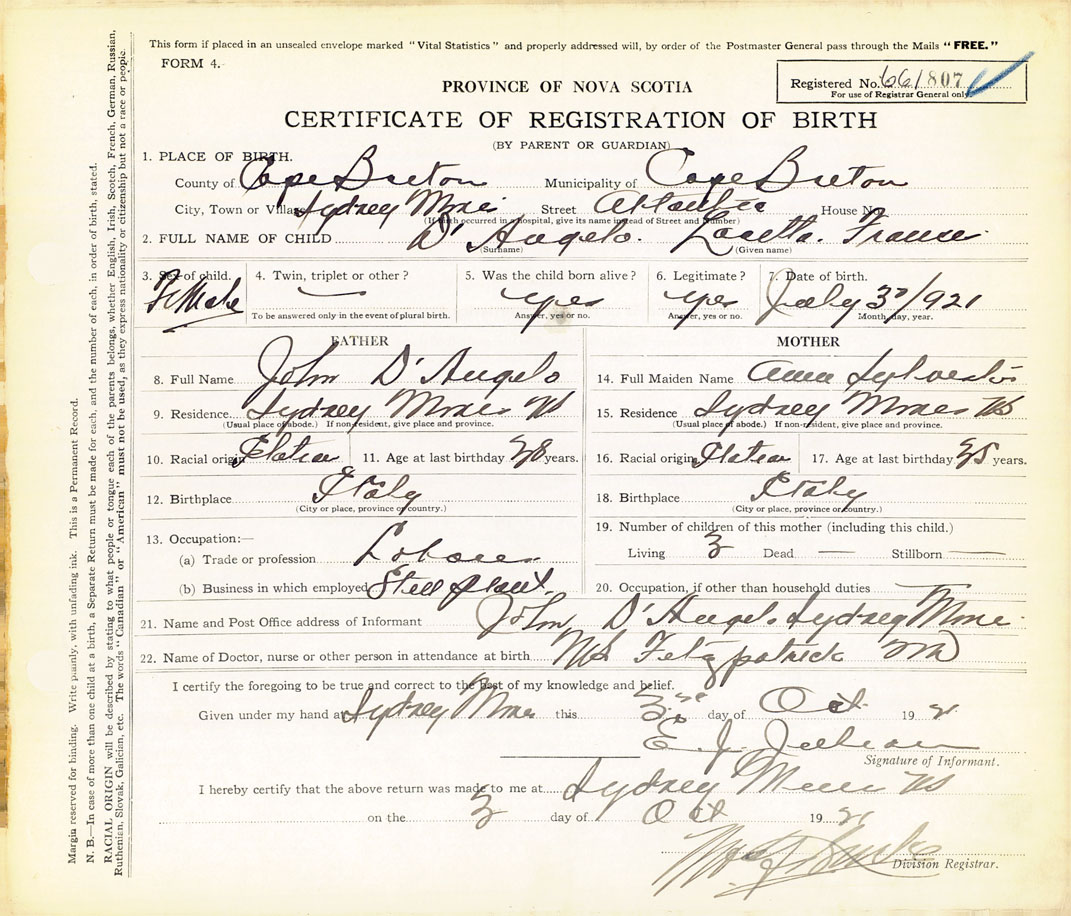 This form if placed in an unsealed envelope marked "Vital Statistics" and properly addressed will, by order of the Postmaster General pass through the Mails "FREE."
FORM 4.
Registered No. 661807
For use of Registrar General only.
PROVINCE OF NOVA SCOTIA
CERTIFICATE OF REGISTRATION OF BIRTH
(BY PARENT OR GUARDIAN)
1. PLACE OF BIRTH.
County of Cape Breton Municipality of Cape Breton
City, Town or Village Sydney Mines Street House No.
(If birth occurred in a hospital, give its name instead of Street and Number)
2. FULL NAME OF CHILD D'Angelo. Loretta.
(Surname) (Given name)
3. Sex of child. 4. Twin, triplet or other? 5. Was the child born alive? 6. Legitimate? 7. Date of birth.
Female — yes yes July 1921
To be answered only in the event of plural birth. Answer, yes or no. Answer, yes or no. Month, day, year.
FATHER MOTHER
8. Full Name John D'Angelo 14. Full Maiden Name Anna
9. Residence Sydney Mines NS 15. Residence Sydney Mines NS
(Usual place of abode.) If non-resident, give place and province. (Usual place of abode.) If non-resident, give place and province.
10. Racial origin Italian 11. Age at last birthday years. 16. Racial origin Italian 17. Age at last birthday years.
12. Birthplace Italy 18. Birthplace Italy
(City or place, province or country.) (City or place, province or country.)
13. Occupation:— 19. Number of children of this mother (including this child.)
(a) Trade or profession Laborer Living 3 Dead — Stillborn —
(b) Business in which employed Steel plant. 20. Occupation, if other than household duties —
21. Name and Post Office address of Informant John D'Angelo Sydney Mines
22. Name of Doctor, nurse or other person in attendance at birth Fitzpatrick MD
I certify the foregoing to be true and correct to the best of my knowledge and belief.
Given under my hand at Sydney Mines this day of Oct 19 21
E. J.
Signature of Informant.
I hereby certify that the above return was made to me at Sydney Mines NS
on the 3 day of Oct 19 21
Division Registrar.
Margin reserved for binding. Write plainly, with unfading ink. This is a Permanent Record.
N. B.—In case of more than one child at a birth, a Separate Return must be made for each, and the number of each, in order of birth, stated.
RACIAL ORIGIN will be described by stating to what people or tongue each of the parents belongs, whether English, Irish, Scotch, French, German, Russian,
Ruthenian, Slovak, Galician, etc. The words "Canadian" or "American" must not be used, as they express nationality or citizenship but not a race or people.